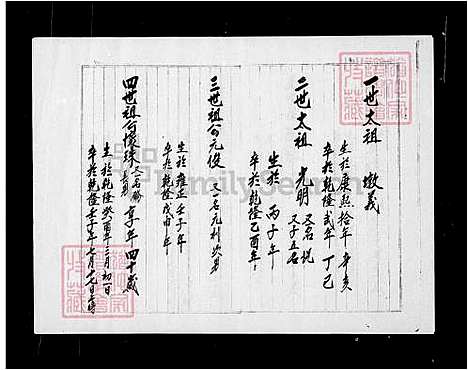 一世太祖 墩義
生於康熙拾年辛亥
卒於乾隆貳年丁巳
二世太祖 光明 又名悅
又子五名
生於丙子年
卒於乾隆乙酉年
三世祖公元俊 又名元利次男
生於雍正壬子年
卒於乾隆戊申年
四世祖公懷珠 又名勝 享年四十歲
長男
生於乾隆癸酉年二月初一日
卒於乾隆壬子年七月十九日
familysearch